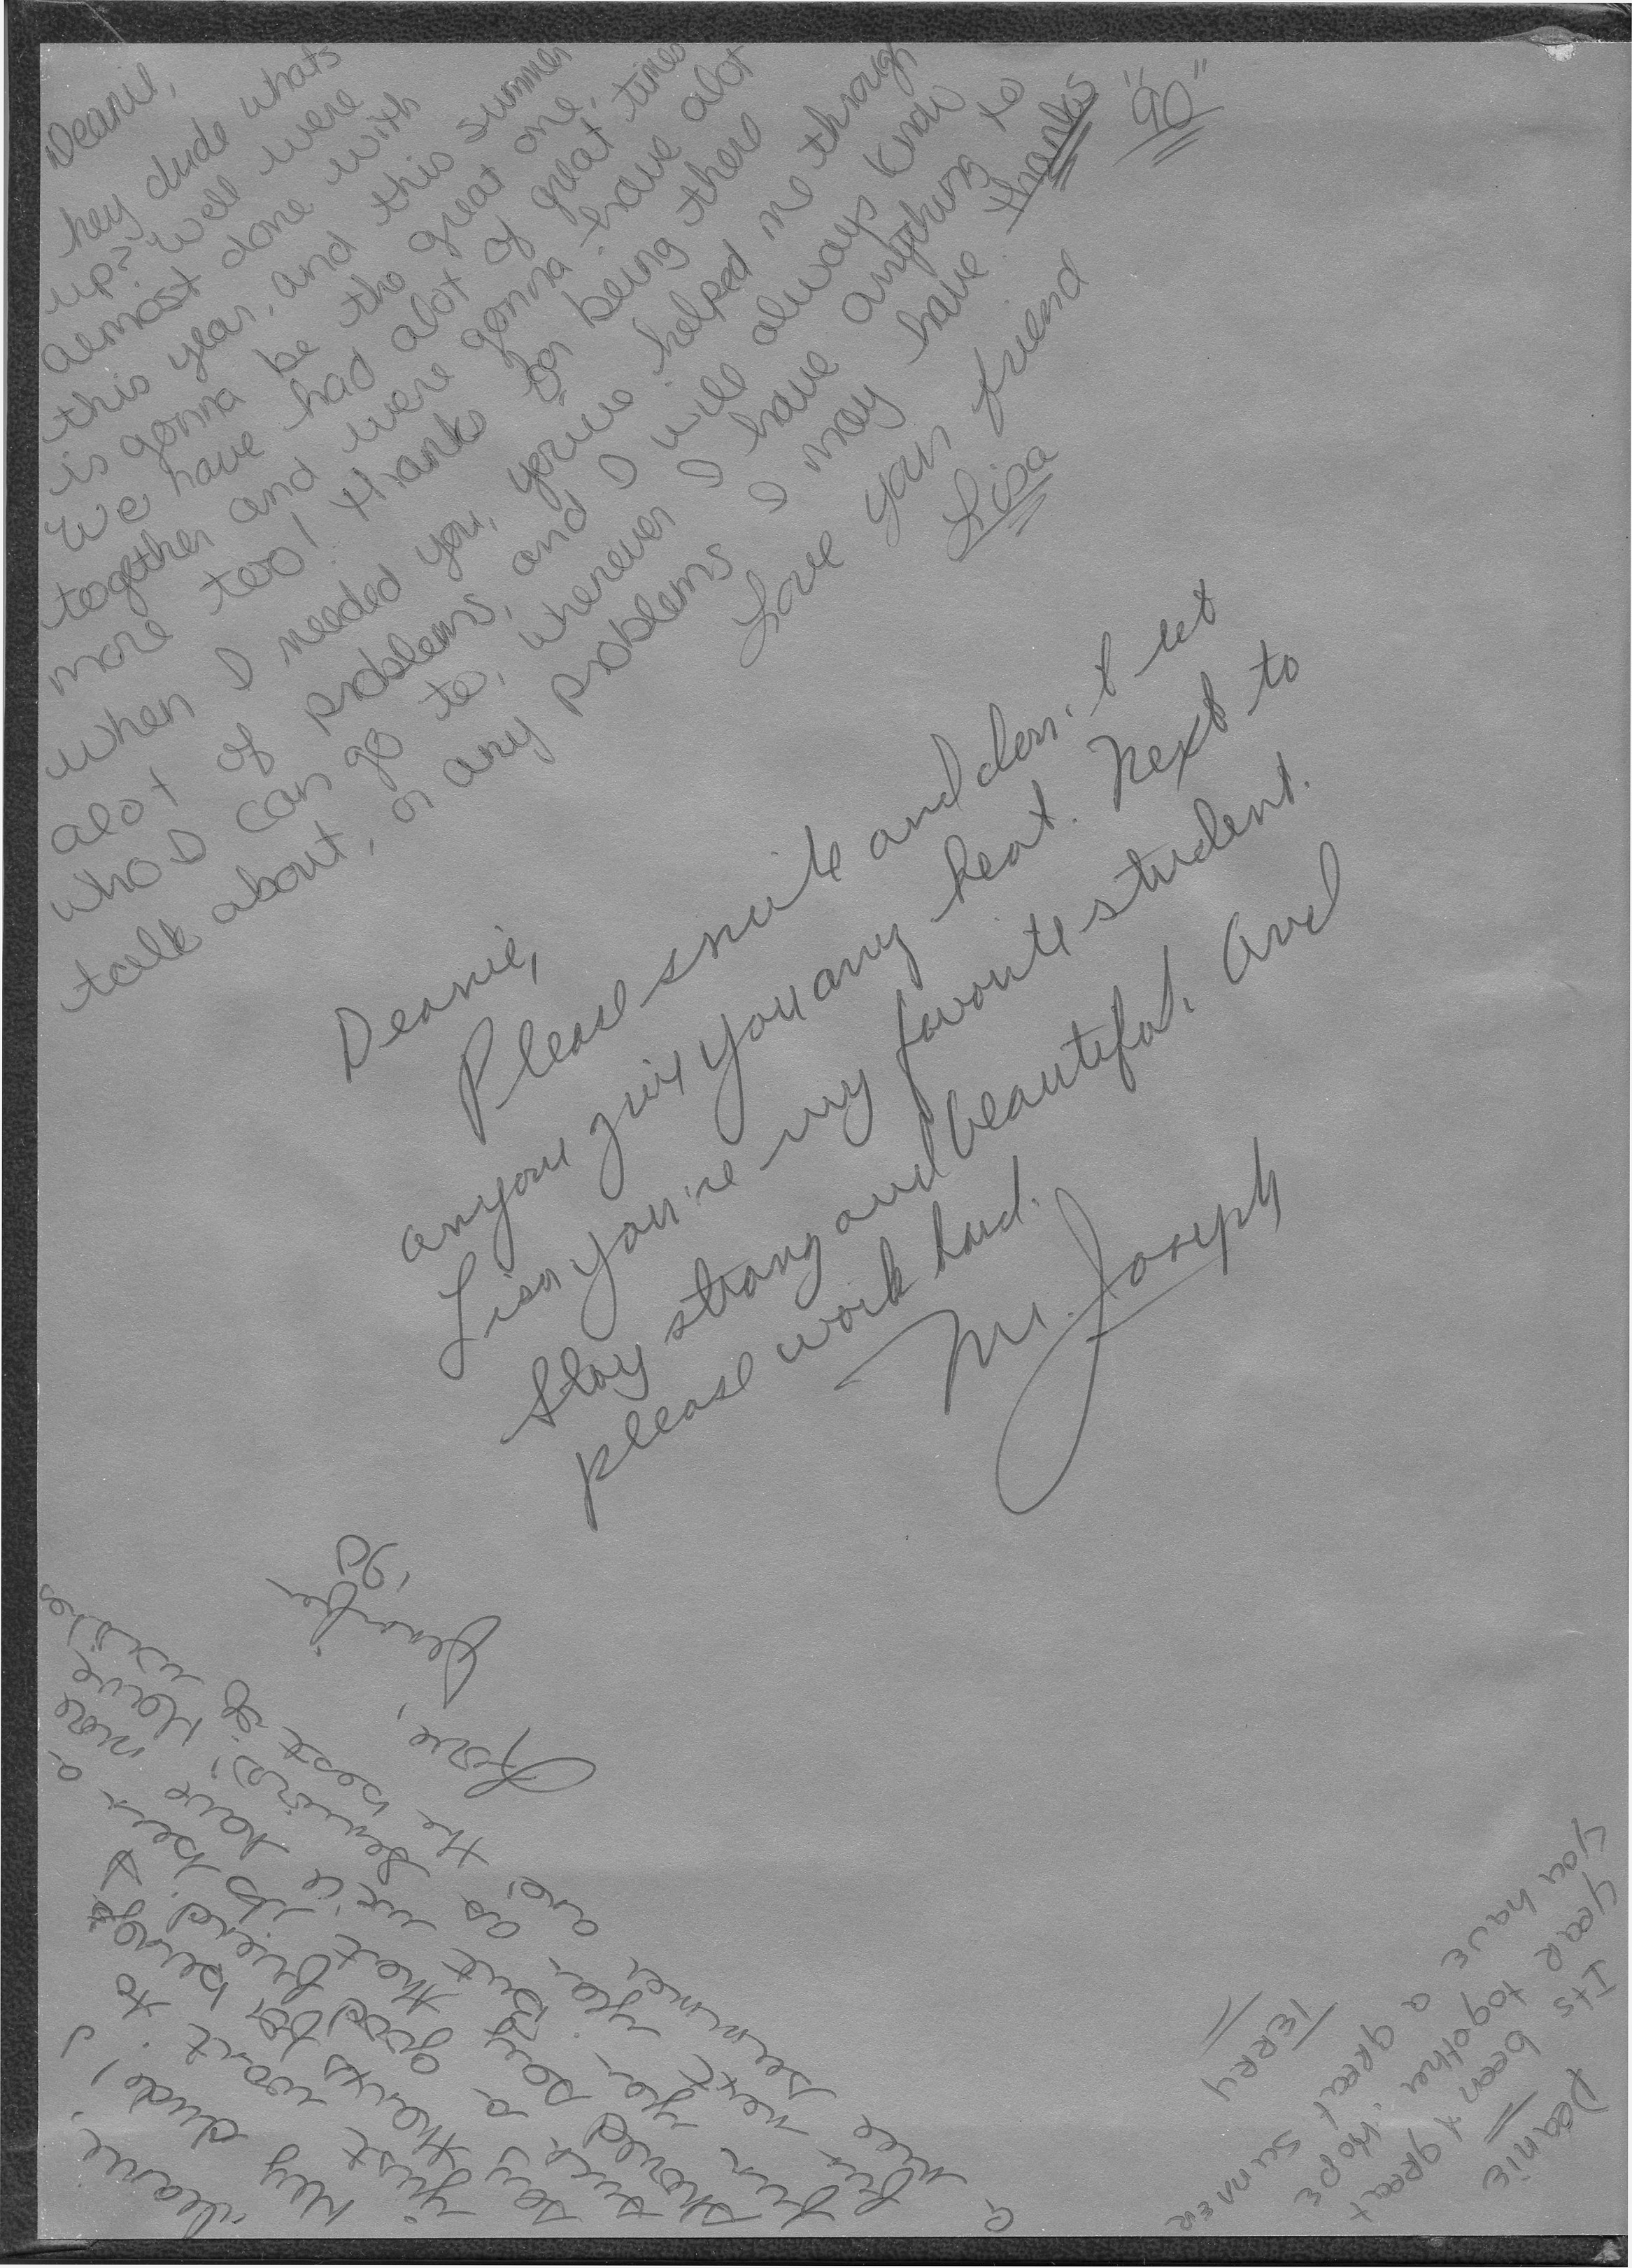 Deanie,
hey dude whats
up? Well were
almost done with
this year, and this summer
is gonna be the great one,
We have had alot of great times
together and were gonna have alot
more too! thanks for being there
when I needed you, you've helped me through
alot of problems, and I will always know
who I can go to, whenever I have anything to
talk about, or any problems I may have thanks
Love your friend
Lisa
"90"
Deanie,
Please smile and don't let
anyone give you any heat. Next to
Lisa you're my favorite student.
Stay strong and beautiful. And
please work hard.
Mr. Joseph
Deanie,
Hey dude!
just want to
say thanks for being
such a good friend. I
should say that it's been a
fun year. But we'll have more
fun next year as seniors; Have
a nice summer and the best of
wishes
Love,
Jennifer
'90
Deanie
Its been a great
year together. Hope
you have a great summer
TERRY